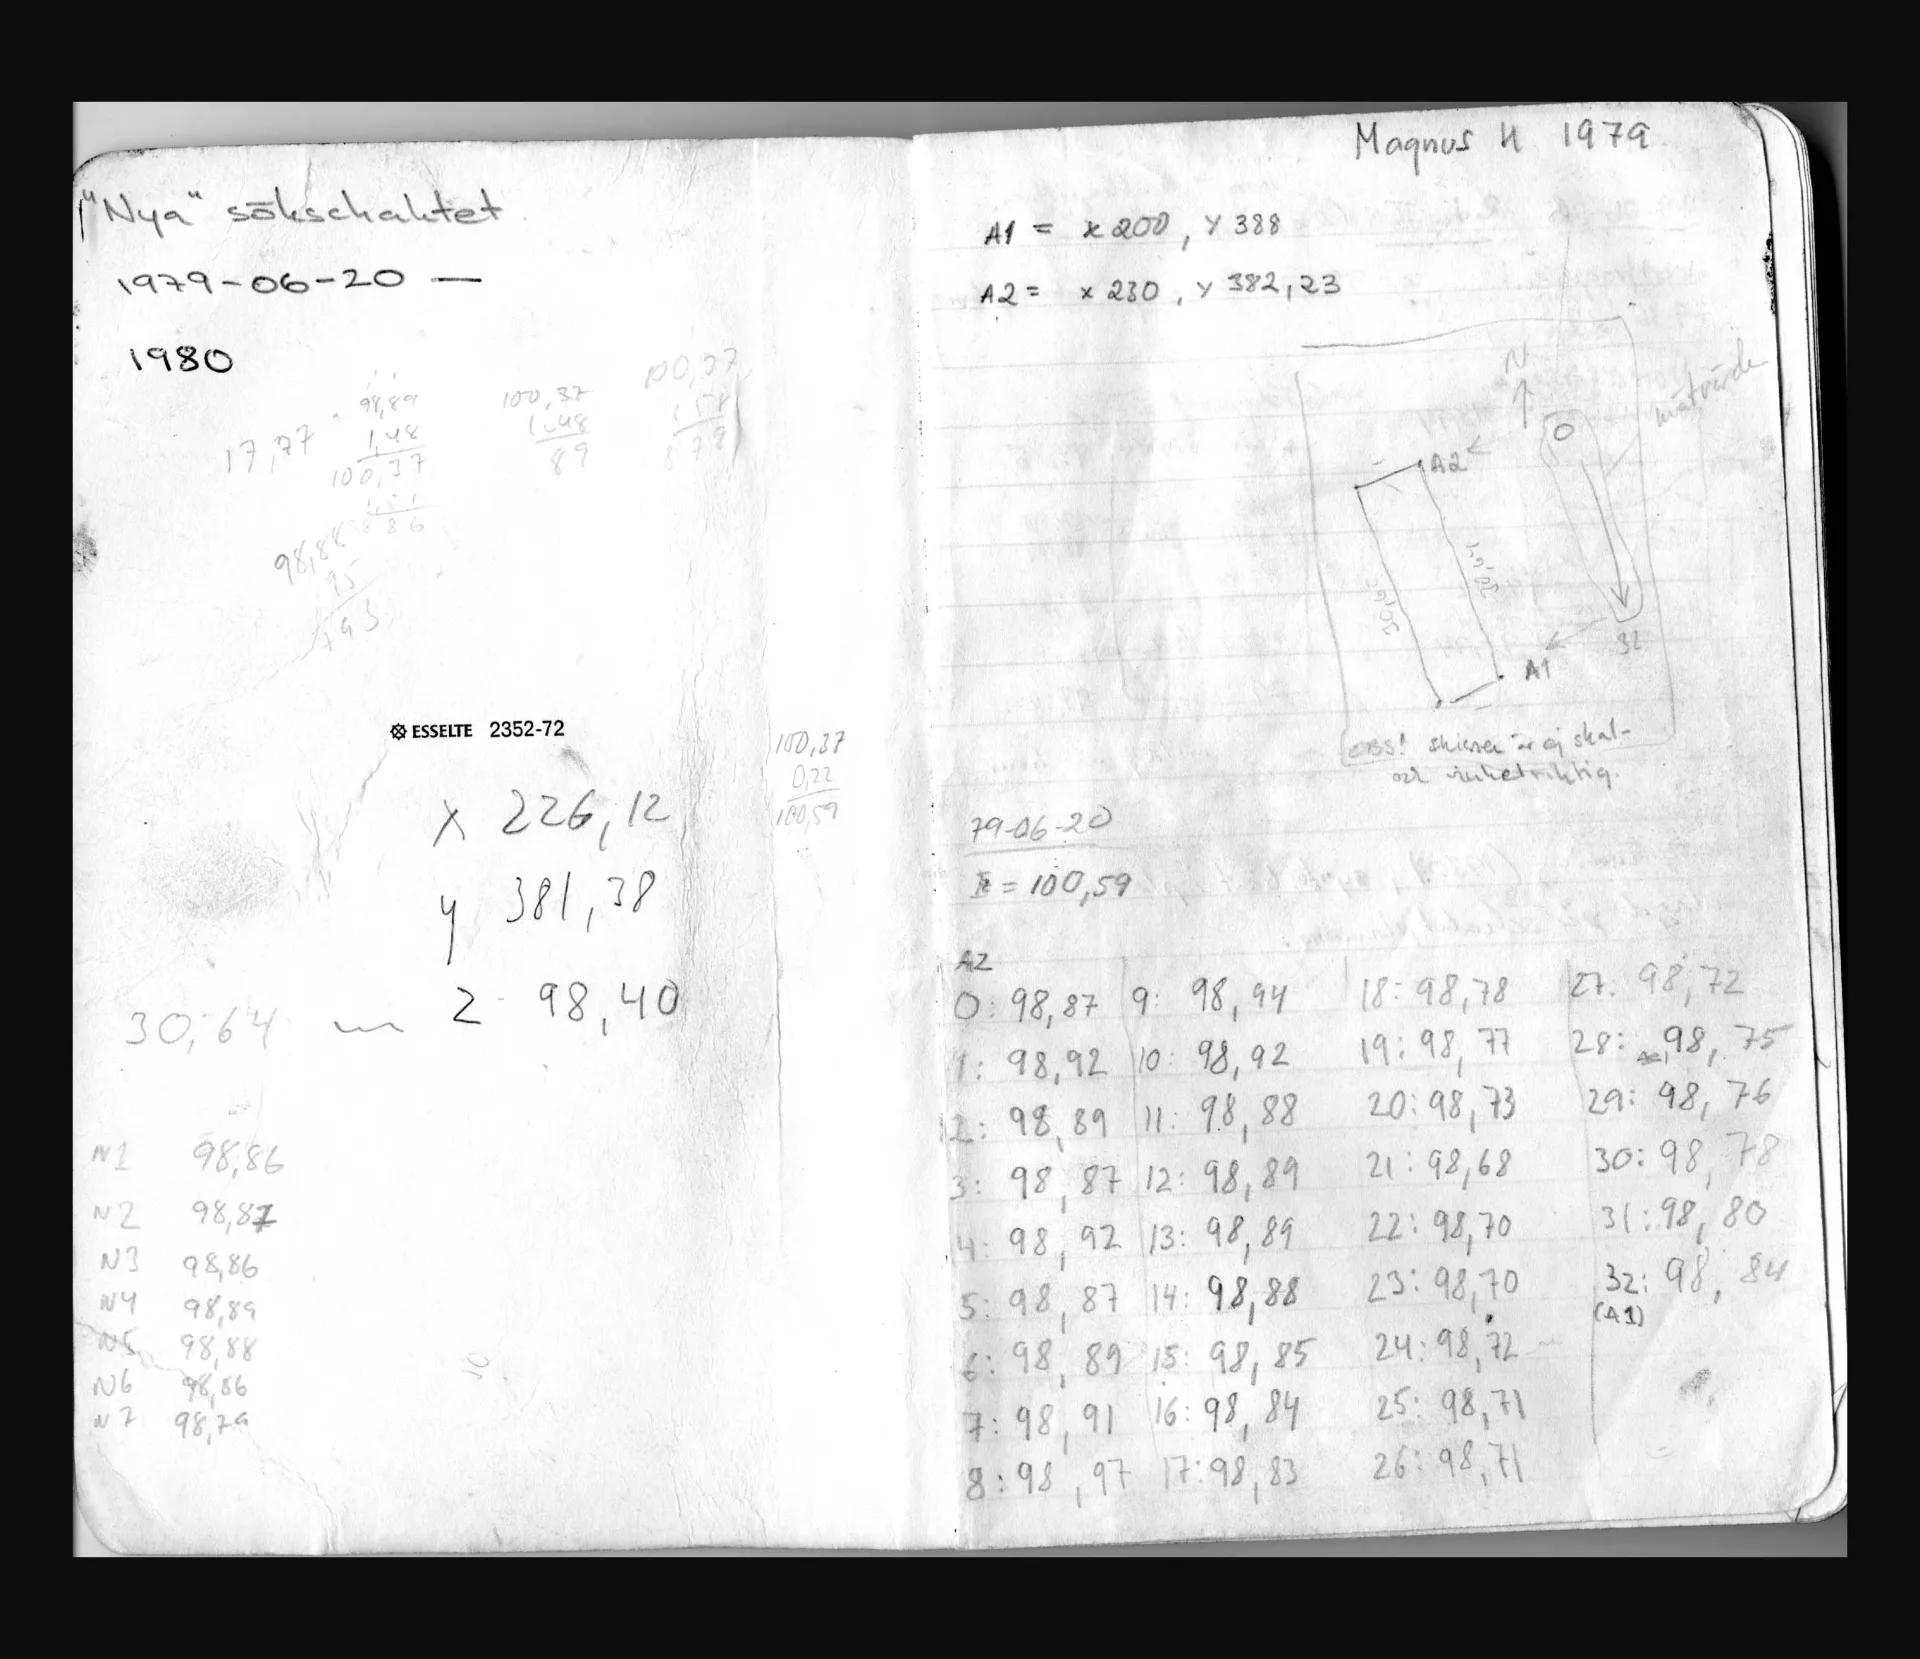 "Nya" sökschaktet
1979-06-20 —
1980
17,77
98,89
1,48
100,37
1,51
886
100,37
1,48
89
100,37
1,58
879
98,88
95
793
ESSELTE 2352-72
100,37
0,22
100,59
x 226,12
y 381,38
z 98,40
30,64
N1 98,86
N2 98,87
N3 98,86
N4 98,89
N5 98,88
N6 98,86
N7 98,79
Magnus H 1979
A1 = x 200, Y 388
A2 = x 230, Y 382,23
N
mätvärde
0
A2
30,61
A1
32
OBS! skissen är ej skal-
och vinkelriktig.
79-06-20
= 100,59
A2
0: 98,87 9: 98,94 18: 98,78 27: 98,72
1: 98,92 10: 98,92 19: 98,77 28: 98,75
2: 98,89 11: 98,88 20: 98,73 29: 98,76
3: 98,87 12: 98,89 21: 98,68 30: 98,78
4: 98,92 13: 98,89 22: 98,70 31: 98,80
5: 98,87 14: 98,88 23: 98,70 32: 98,84
(A1)
6: 98,89 15: 98,85 24: 98,72
7: 98,91 16: 98,84 25: 98,71
8: 98,97 17: 98,83 26: 98,71